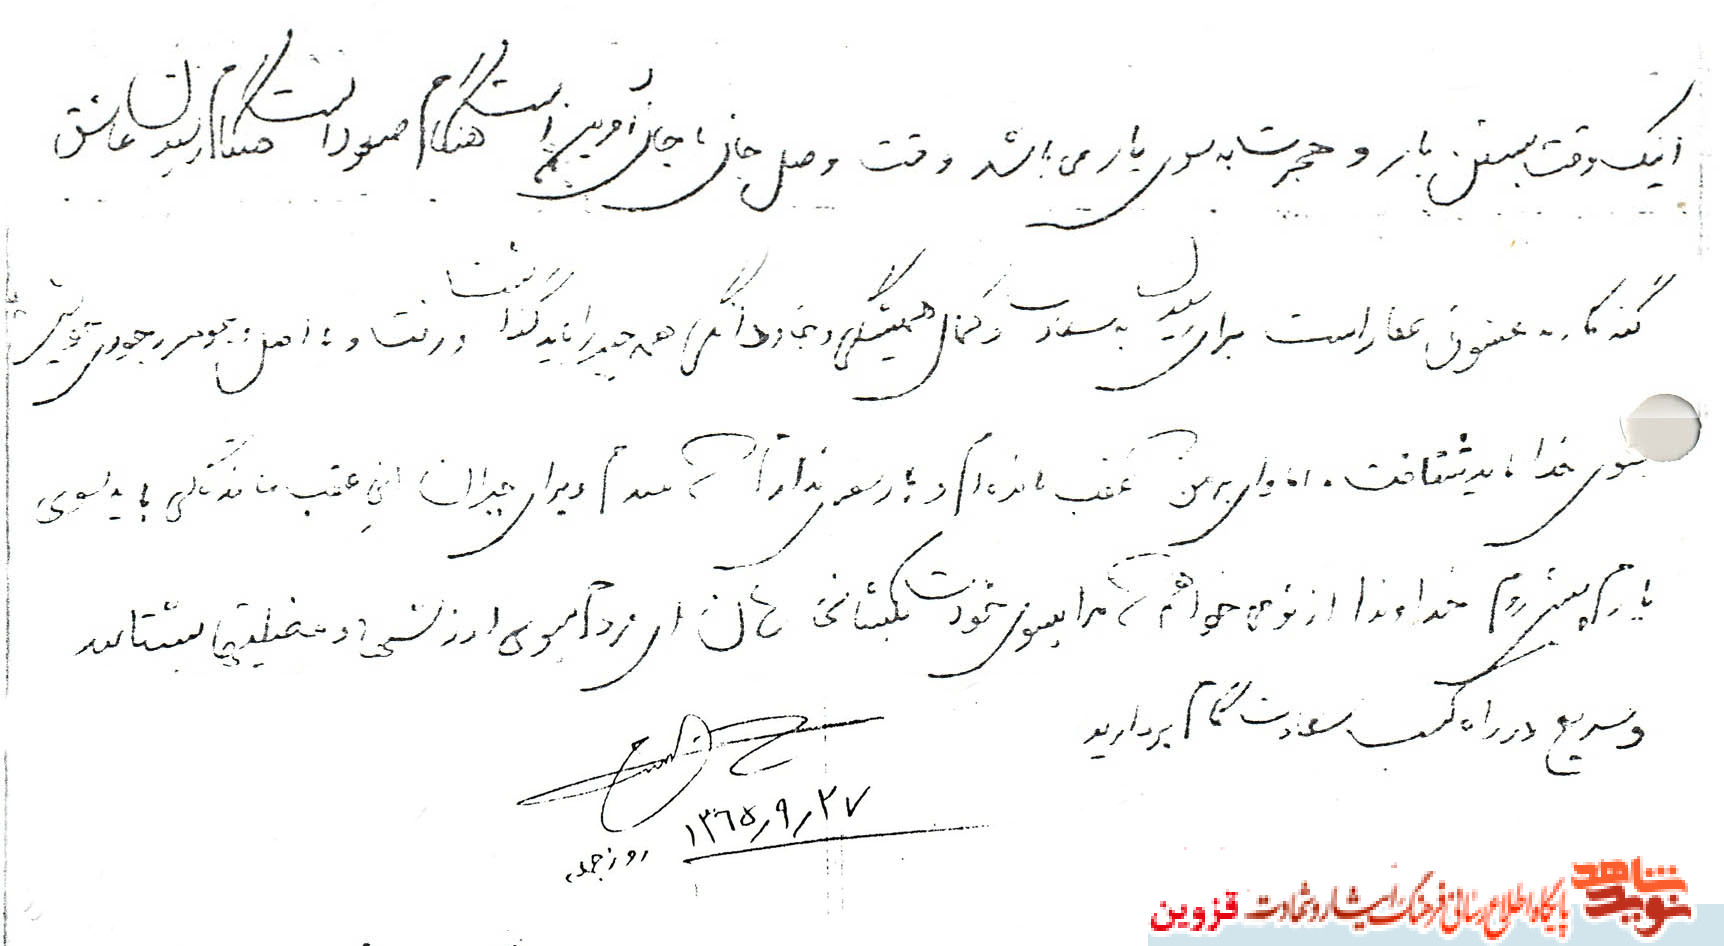 اینک وقت بستن بار و هجرت به سوی یار می باشد وقت وصل جان با جان آفرین است هنگام صعود است هنگام رسیدن عاشق
گنه کار به معشوق غفار است برای رسیدن به سعادت و کمال همیشگی و جاودانگی همه چیز را باید گذاشت و رفت و با اصل و جوهر وجودی خویش
بسوی خدا باید شتافت . اما وای بر من که عقب مانده ام و بار سفر ندارم که ببندم و برای جبران این عقب ماندگی باید بسوی
یارم پیش روم خداوندا از تو می خواهم که مرا بسوی خودت بکشانی هان ای مردم بسوی ارزشها و فضیلتها بشتابید
و سریع در راه کسب سعادت گام بردارید
۱۳۶۵٫۹٫۲۷
روز جمعه
نوید شاهد
پایگاه اطلاع رسانی فرهنگ ایثار و شهادت قزوین